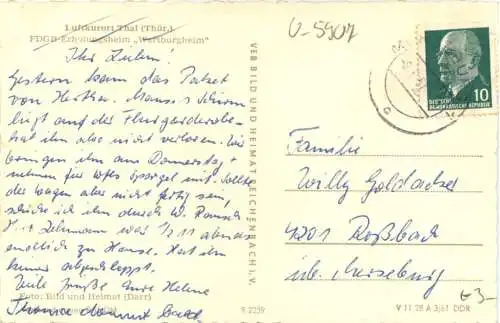 Luftkurort Thal (Thür.)
FDGB-Erholungsheim „Wartburgheim"
Ihr Lieben!
Gestern kam das Paket
von Hertha. Manss's Schirm
liegt auf der Flurgarderobe
hat ihn also nicht verloren. Wir
bringen ihn am Donnerstag
nehmen für mit. Sollte
der Wagen aber nicht fertig sein,
schicke ich ihn durch W.
Herr Lehmann war 1/2 11 abends
endlich zu Hause. Hat ihn
keiner abgeschleppt.
Viele Grüße Eure Helene
Thomas
Foto: Bild und Heimat (Darr)
VEB BILD UND HEIMAT REICHENBACH i. V.
S 2239
U-5907
DEUTSCHE
DEMOKRATISCHE REPUBLIK
10
Familie
Willy Goldacker
4201 Roßbach
üb. Merseburg
V 11 28 A 3/61 DDR
€3-